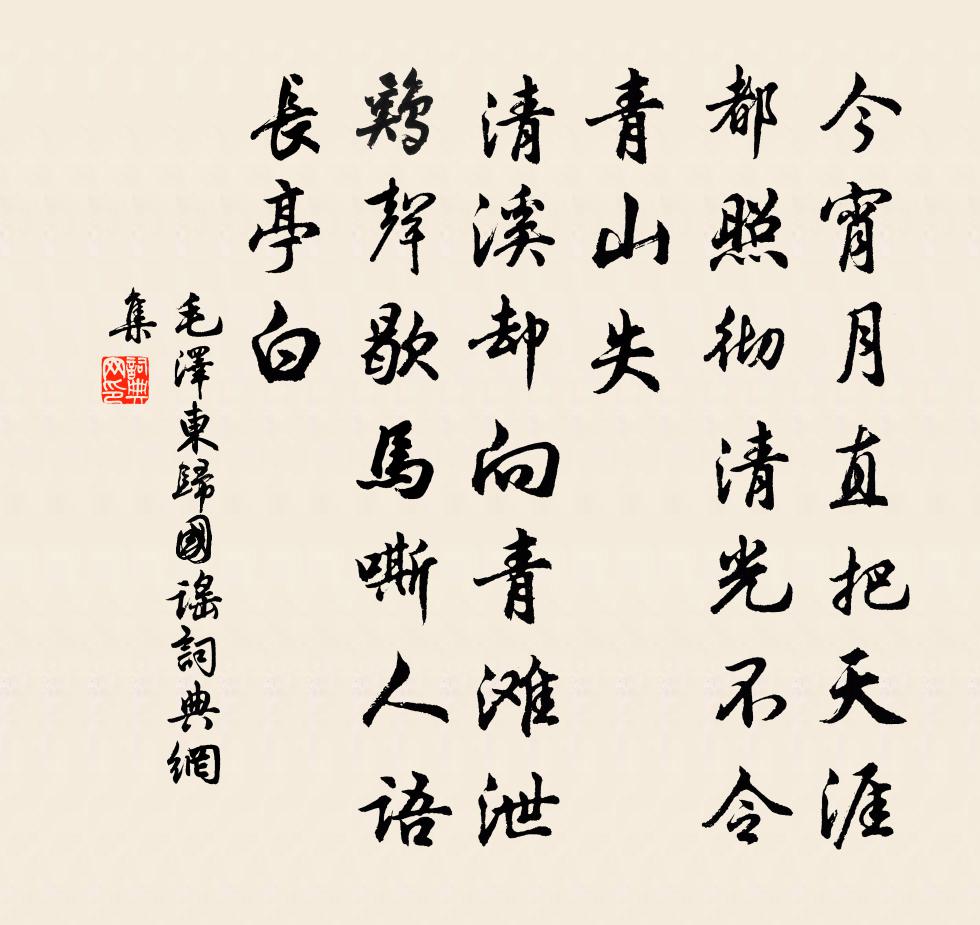 今宵月直把天涯
都照彻清光不令
青山失
清溪却向青滩泄
鷄聲歇馬嘶人語
長亭白
毛澤東歸國謠詞典網
集
詞典網印